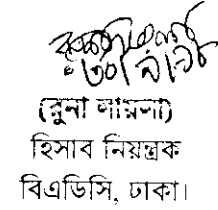 (রুনা লায়লা)
হিসাব নিয়ন্ত্রক
বিএডিসি, ঢাকা।